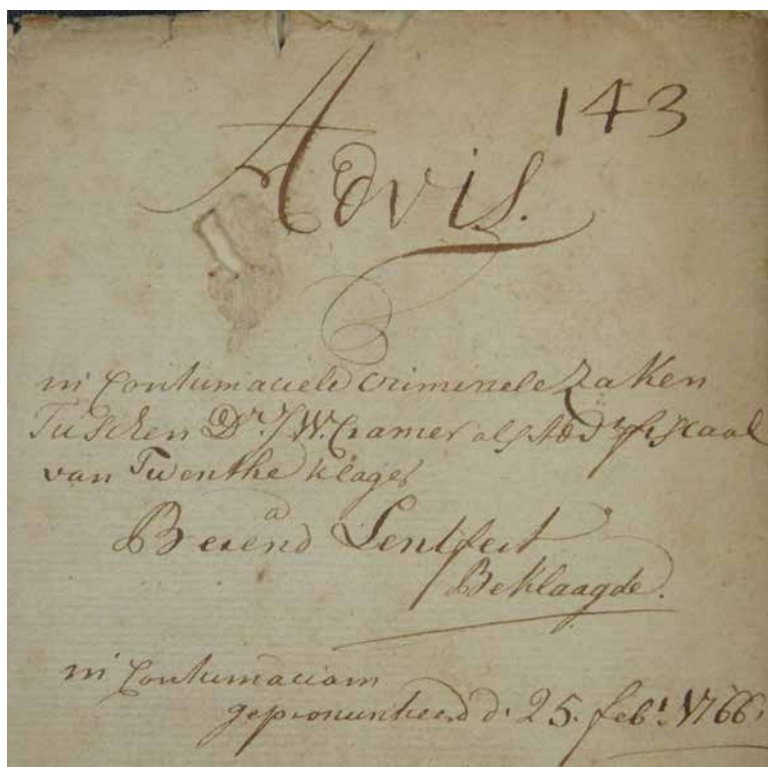 143
Advis.
in Contumaciele Crimineele Zaken
Tuschen Dr. J W. Cramer als Adv. fiscaal
van Twenthe klager
a
Berend Lentfert
Beklaagde.
in Contumaciam
gepronuntieerd d. 25. feb. 1766.